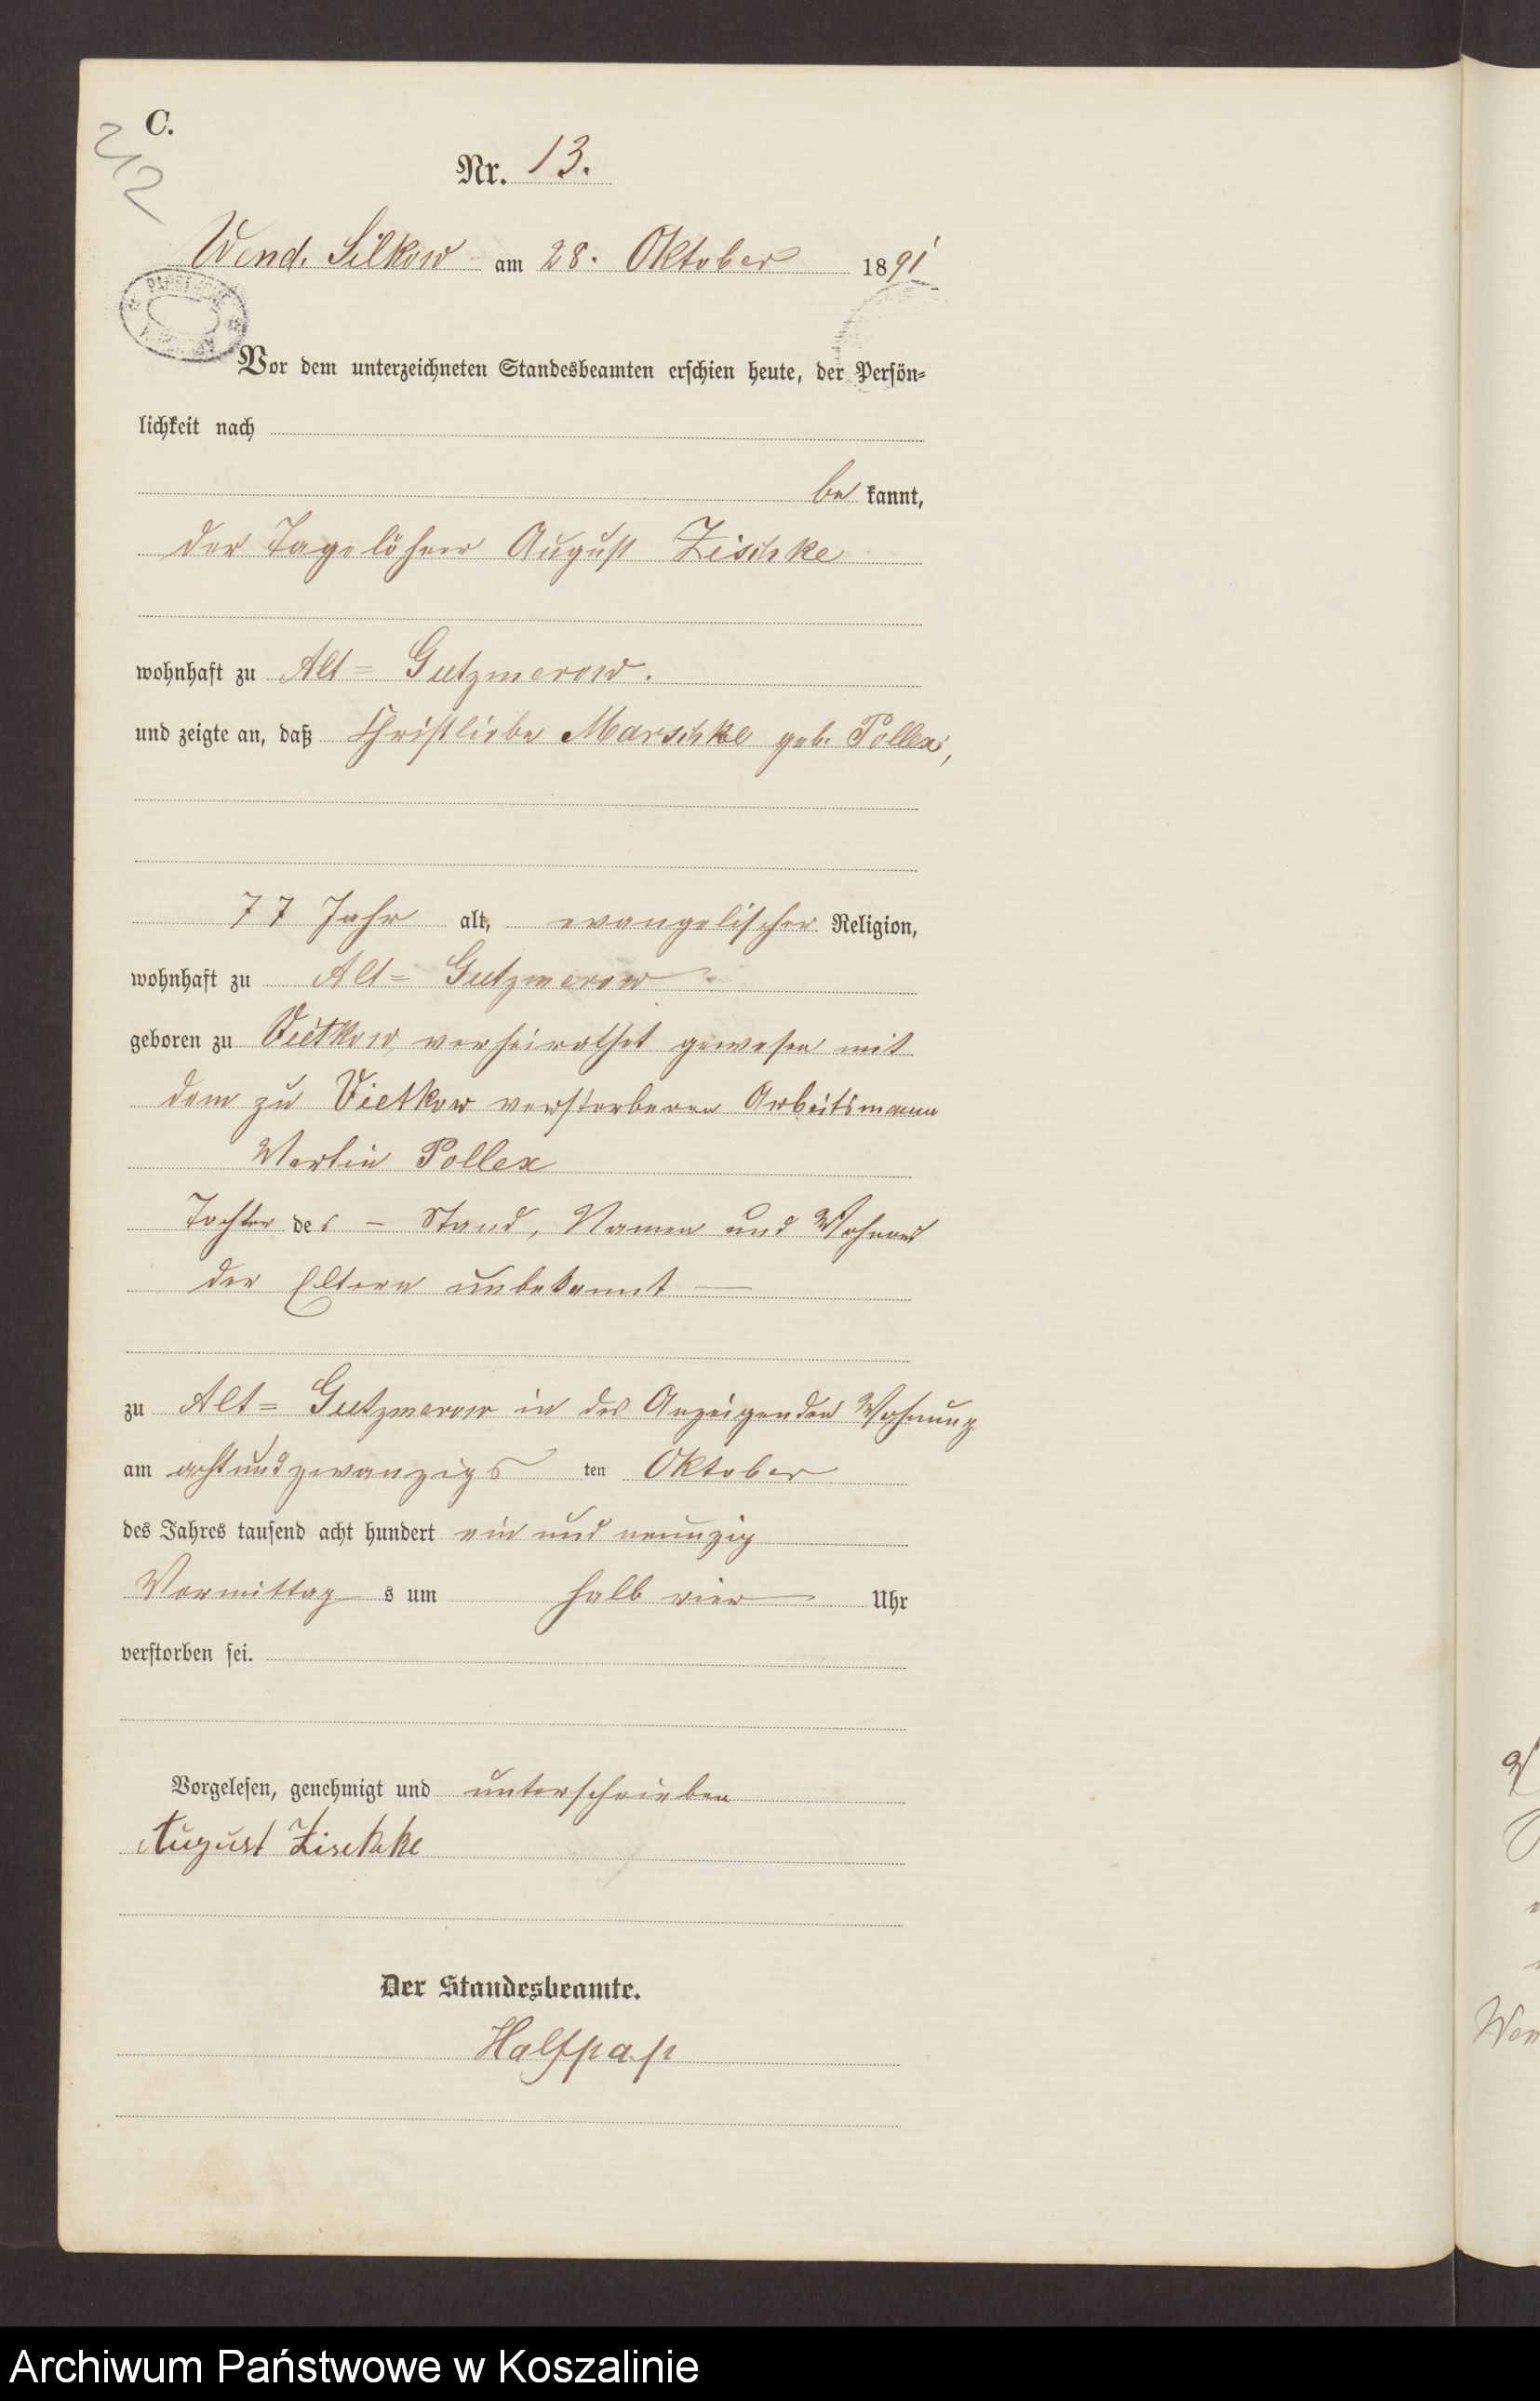 C.
212
Nr. 13.
Wend. Silkow am 28. Oktober 1891
Vor dem unterzeichneten Standesbeamten erschien heute, der Persön-
lichkeit nach
be kannt,
der Tagelöhner August Zischke
wohnhaft zu Alt- Gutzmerow.
und zeigte an, daß Christliebe Marschke geb. Pollex,
77 Jahr alt, evangelischer Religion,
wohnhaft zu Alt- Gutzmerow
geboren zu Vietkow, verheirathet gewesen mit
dem zu Vietkow verstorbenen Arbeitsmann
Martin Pollex
Tochter des – Stand, Namen und Wohnort
der Eltern unbekannt —
zu Alt- Gutzmerow in des Anzeigenden Wohnung
am achtundzwanzigs ten Oktober
des Jahres tausend acht hundert ein und neunzig
Vormittag s um halb vier Uhr
verstorben sei.
Vorgelesen, genehmigt und unterschrieben
August Zischke
Der Standesbeamte.
Halfpap
Archiwum Państwowe w Koszalinie